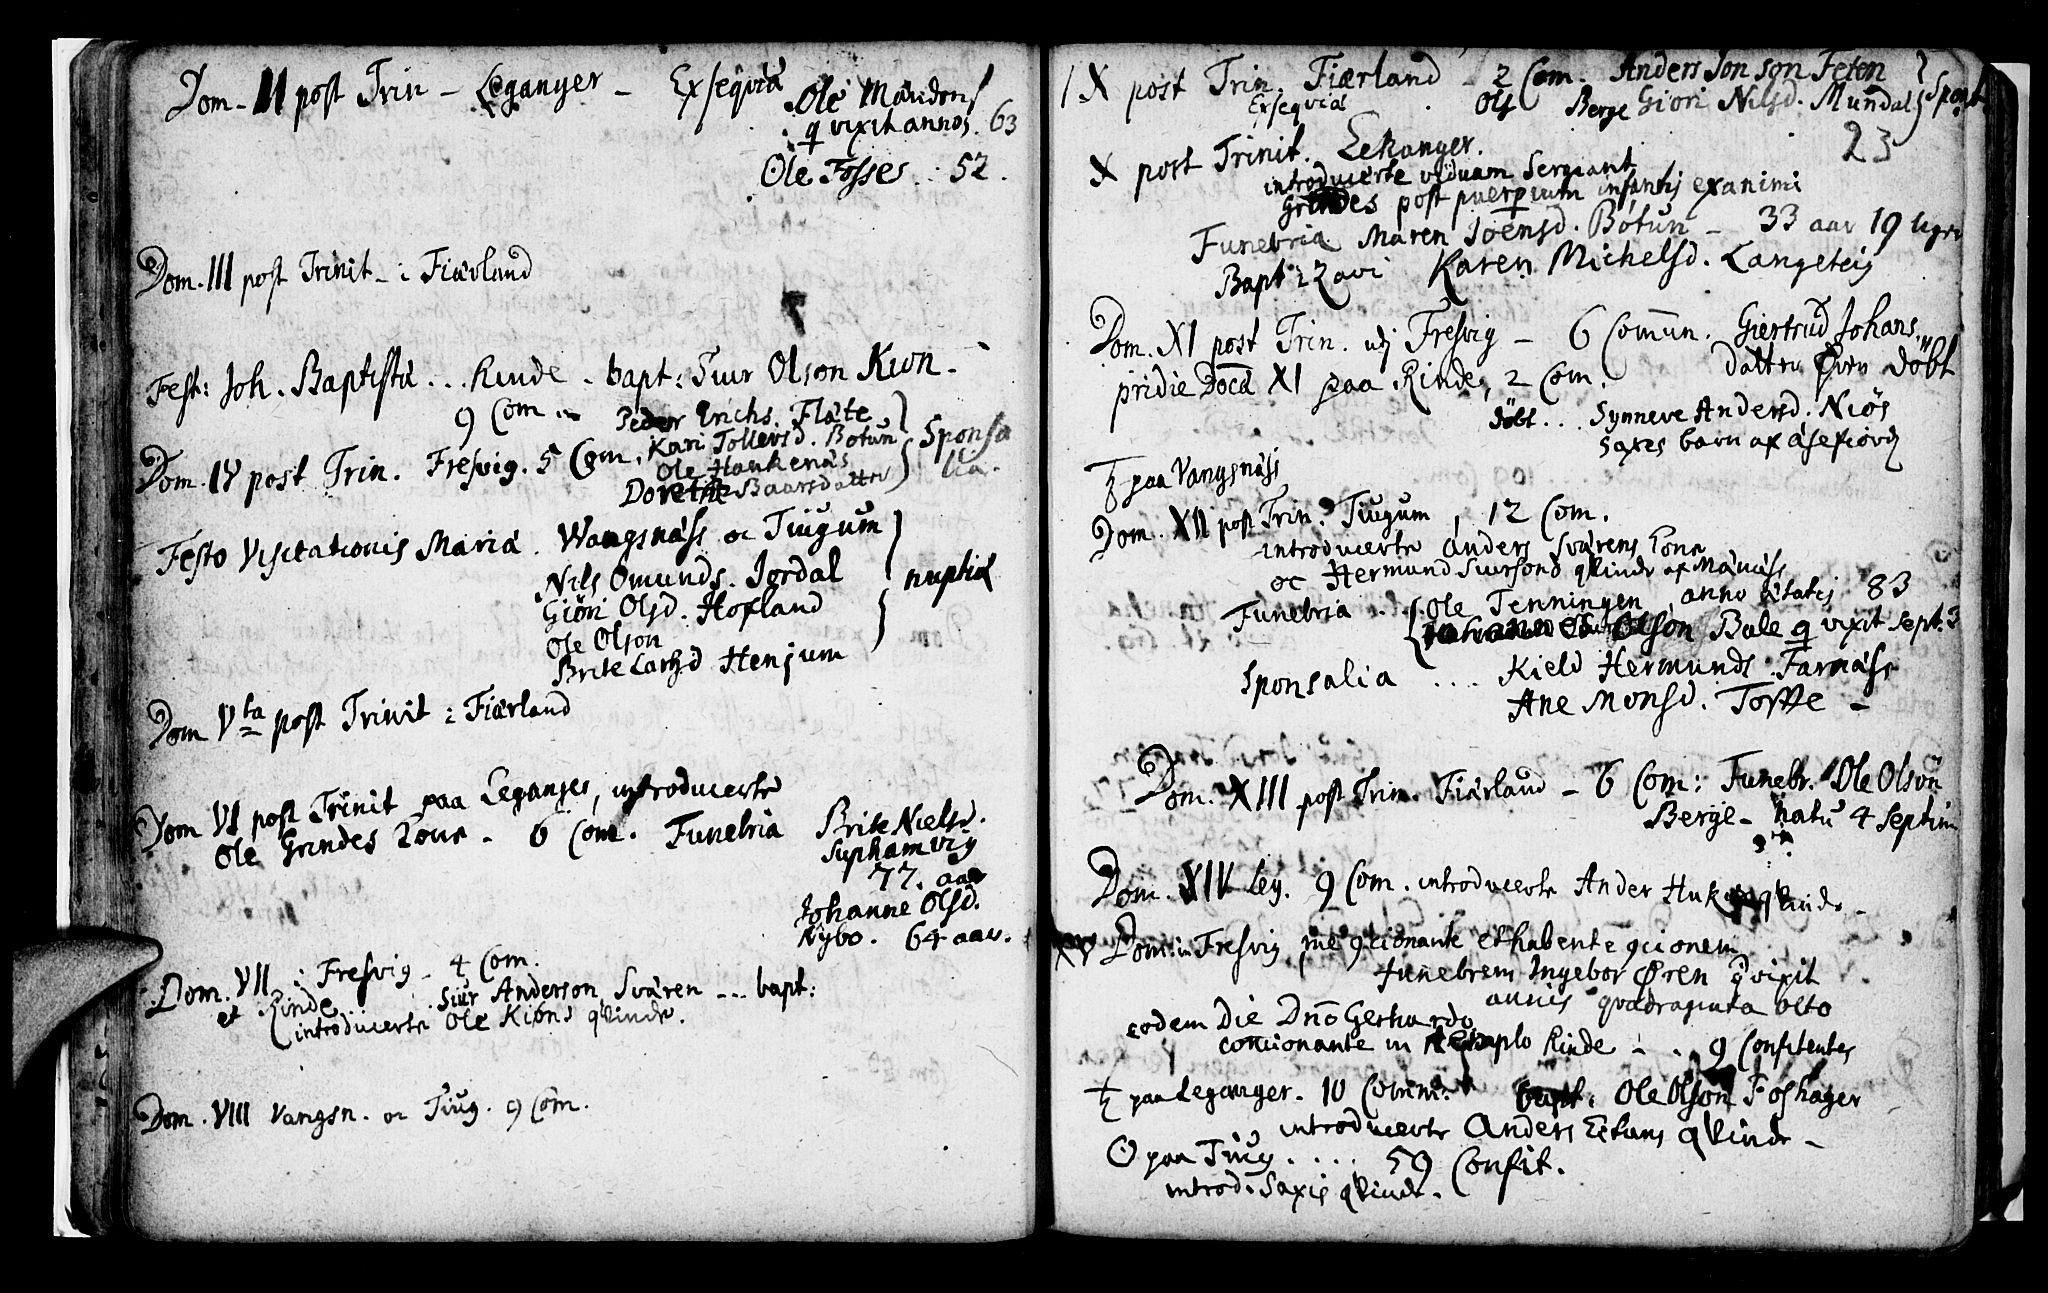 Dom. II post Trin – Leganger – Exseqviæ
Ole Mandens
q vixit annos. 63
Ole Fosses . 52.
Dom. III post Trinit – i Fiærland
Fest: Joh. Baptistæ . . . Rinde . bapt: Siur Olson Kion –
9 Com
Peder Erichs. Flate
Kari Tollevsd. Botun
Dom. IV post Trin. Fresvig. 5 Com. Sponsa
lia.
Ole Haukenäs
Dorethe Baarsdatter
Festo Visitationis Mariæ. Wangsnäss oc Tiugum
Nils Omunds. Jordal
Giöri Olsd. Hofland nuptiæ
Ole Olson
Brite Larsd Henjum
Dom Vta post Trinit i Fiærland
Dom VI post Trinit paa Leganger, introducerte
Ole Grindes Kone – 6 Com. Funebria Brite Nielsd.
Suphamvig
77. aar
Johanne Olsd.
Nybo. 64 aar.
Dom. VII i Fresvig – 4 Com.
et Rinde Siur Anderson Svären ... bapt:
introducerte Ole Kions qvinde.
Dom. VIII Vangsn. oc Tiug. 9 Com.
IX post Trin. Fiærland – 2 Com. Anders Jonson Feten
Exseqviæ Ole Berge Giöri Nilsd. Mundal Spons
23
X post Trinit. Lekanger.
introducerte viduam Sergeant
Grindes post puerperium infantis exanimi
Funebria Maren Joensd. Botun – 33 aar 19 uger
Bapt: Karen Michelsd. Langeteig
Dom. XI post Trin. udj Fresvig – 6 Comun. Giertrud Johans
datter Øren döbt
pridie Doca XI paa Rinde, 2 Com.
döbt . . . Synneve Andersd. Niös
Saxes barn af Asefiord
♄ paa Vangsnäss
Dom. XII post Trin. Tiugum, 12 Com.
introducerte Anders Svärens Kone
oc Hermund Siursons qvinde af
Funebria . . Ole Tenningen, anno ætatis 83
Olson Bale q vixit sept. 3
Sponsalia .... Kield Hermunds. Farnäss
Ane Monsd. Toffte –
Dom. XIII post Trin. Fiärland – 6 Com: Funebr. Ole Olsön
Berge – natu 4 septim
Dom. XIV Leg. 9 Com. introducerte Ander qvinde –
XV Dom: in Fresvig me 9cionante et habente 9cionem
funebrem Ingebor Øren q vixit
annis quadraginta octo
eodem Die Dno Gerhardo
concionante in templo Rinde – . . 9 Confitentes
♄ paa Leganger. 10 Comm: bapt. Ole Olson Foshager
introducerte Anders Eitans qvinde –
☉ paa Tiug . . . . 59 Confit.
introd. Saxis qvinde.